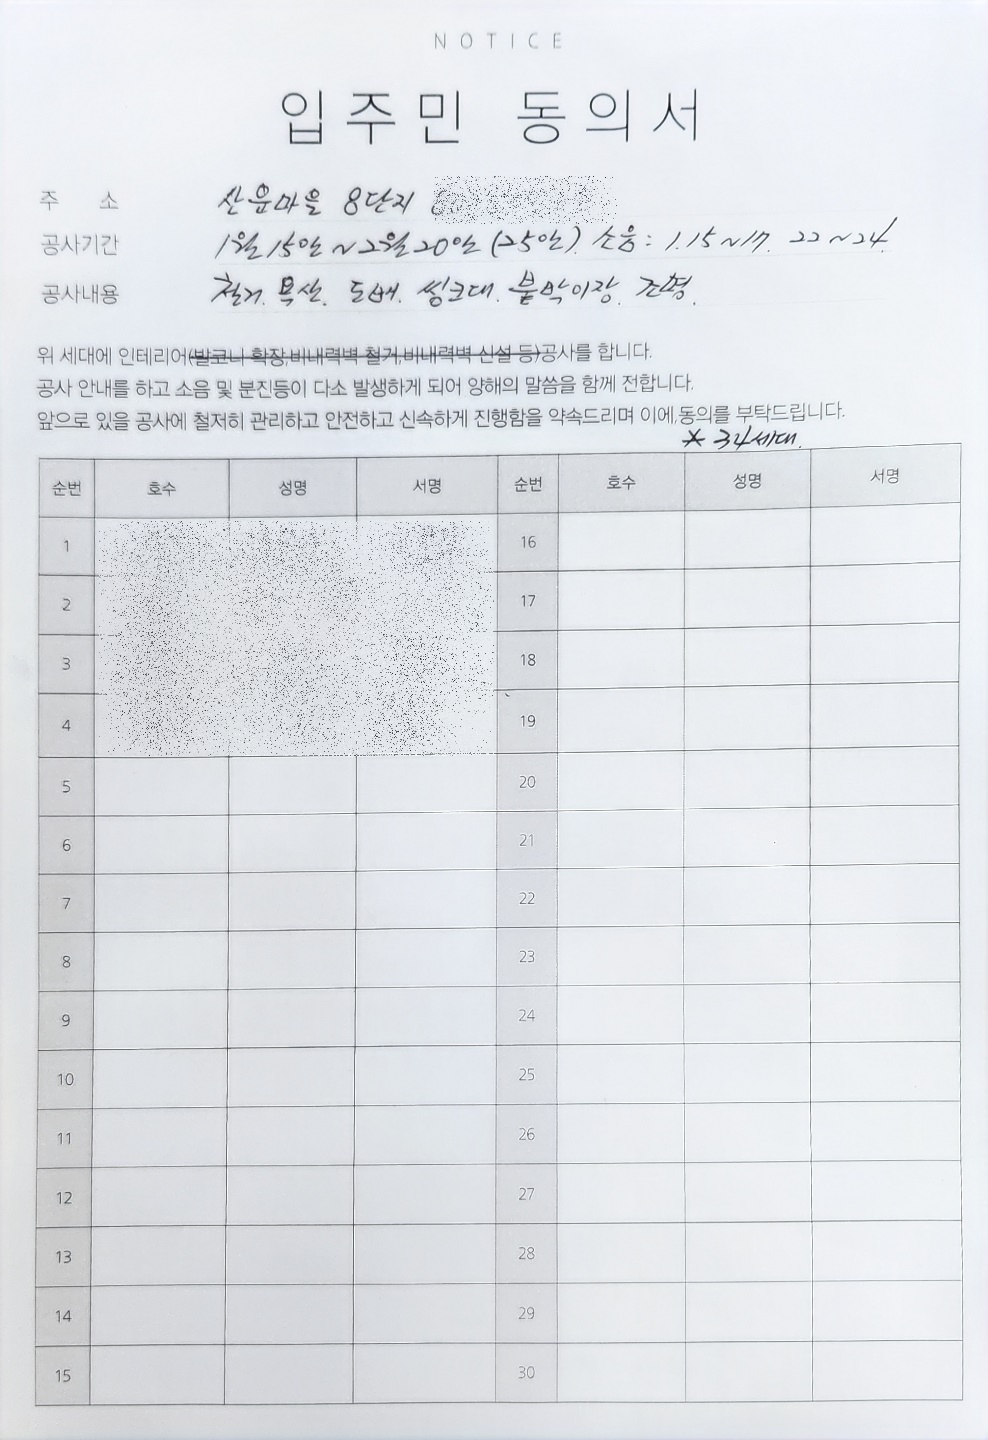 NOTICE
입주민 동의서
주 소 산운마을 8단지
공사기간 1월 15일 ~ 2월 20일 (25일). 소음 : 1.15 ~ 17. 22 ~ 24.
공사내용 철거. 목산. 도배. 씽크대. 붙박이장. 조명.
위 세대에 인테리어(발코니 확장,비내력벽 철거,비내력벽 신설 등)공사를 합니다.
공사 안내를 하고 소음 및 분진등이 다소 발생하게 되어 양해의 말씀을 함께 전합니다.
앞으로 있을 공사에 철저히 관리하고 안전하고 신속하게 진행함을 약속드리며 이에,동의를 부탁드립니다.
* 34세대.
순번 호수 성명 서명 순번 호수 성명 서명
1 16
2 17
3 18
4 19
5 20
6 21
7 22
8 23
9 24
10 25
11 26
12 27
13 28
14 29
15 30